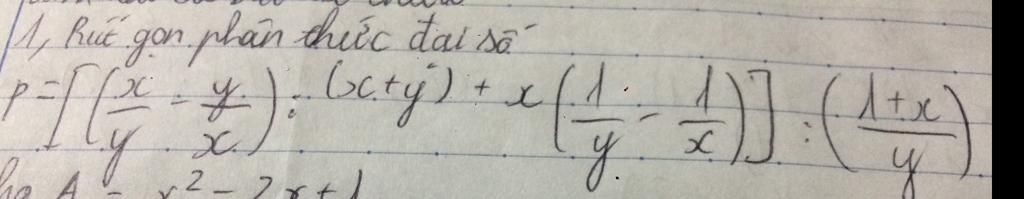 1, Rút gọn phân thức đại số
P = [(x/y - y/x) : (x+y) + x(1/y - 1/x)] : (1+x/y)
A = x² - 2x + 1